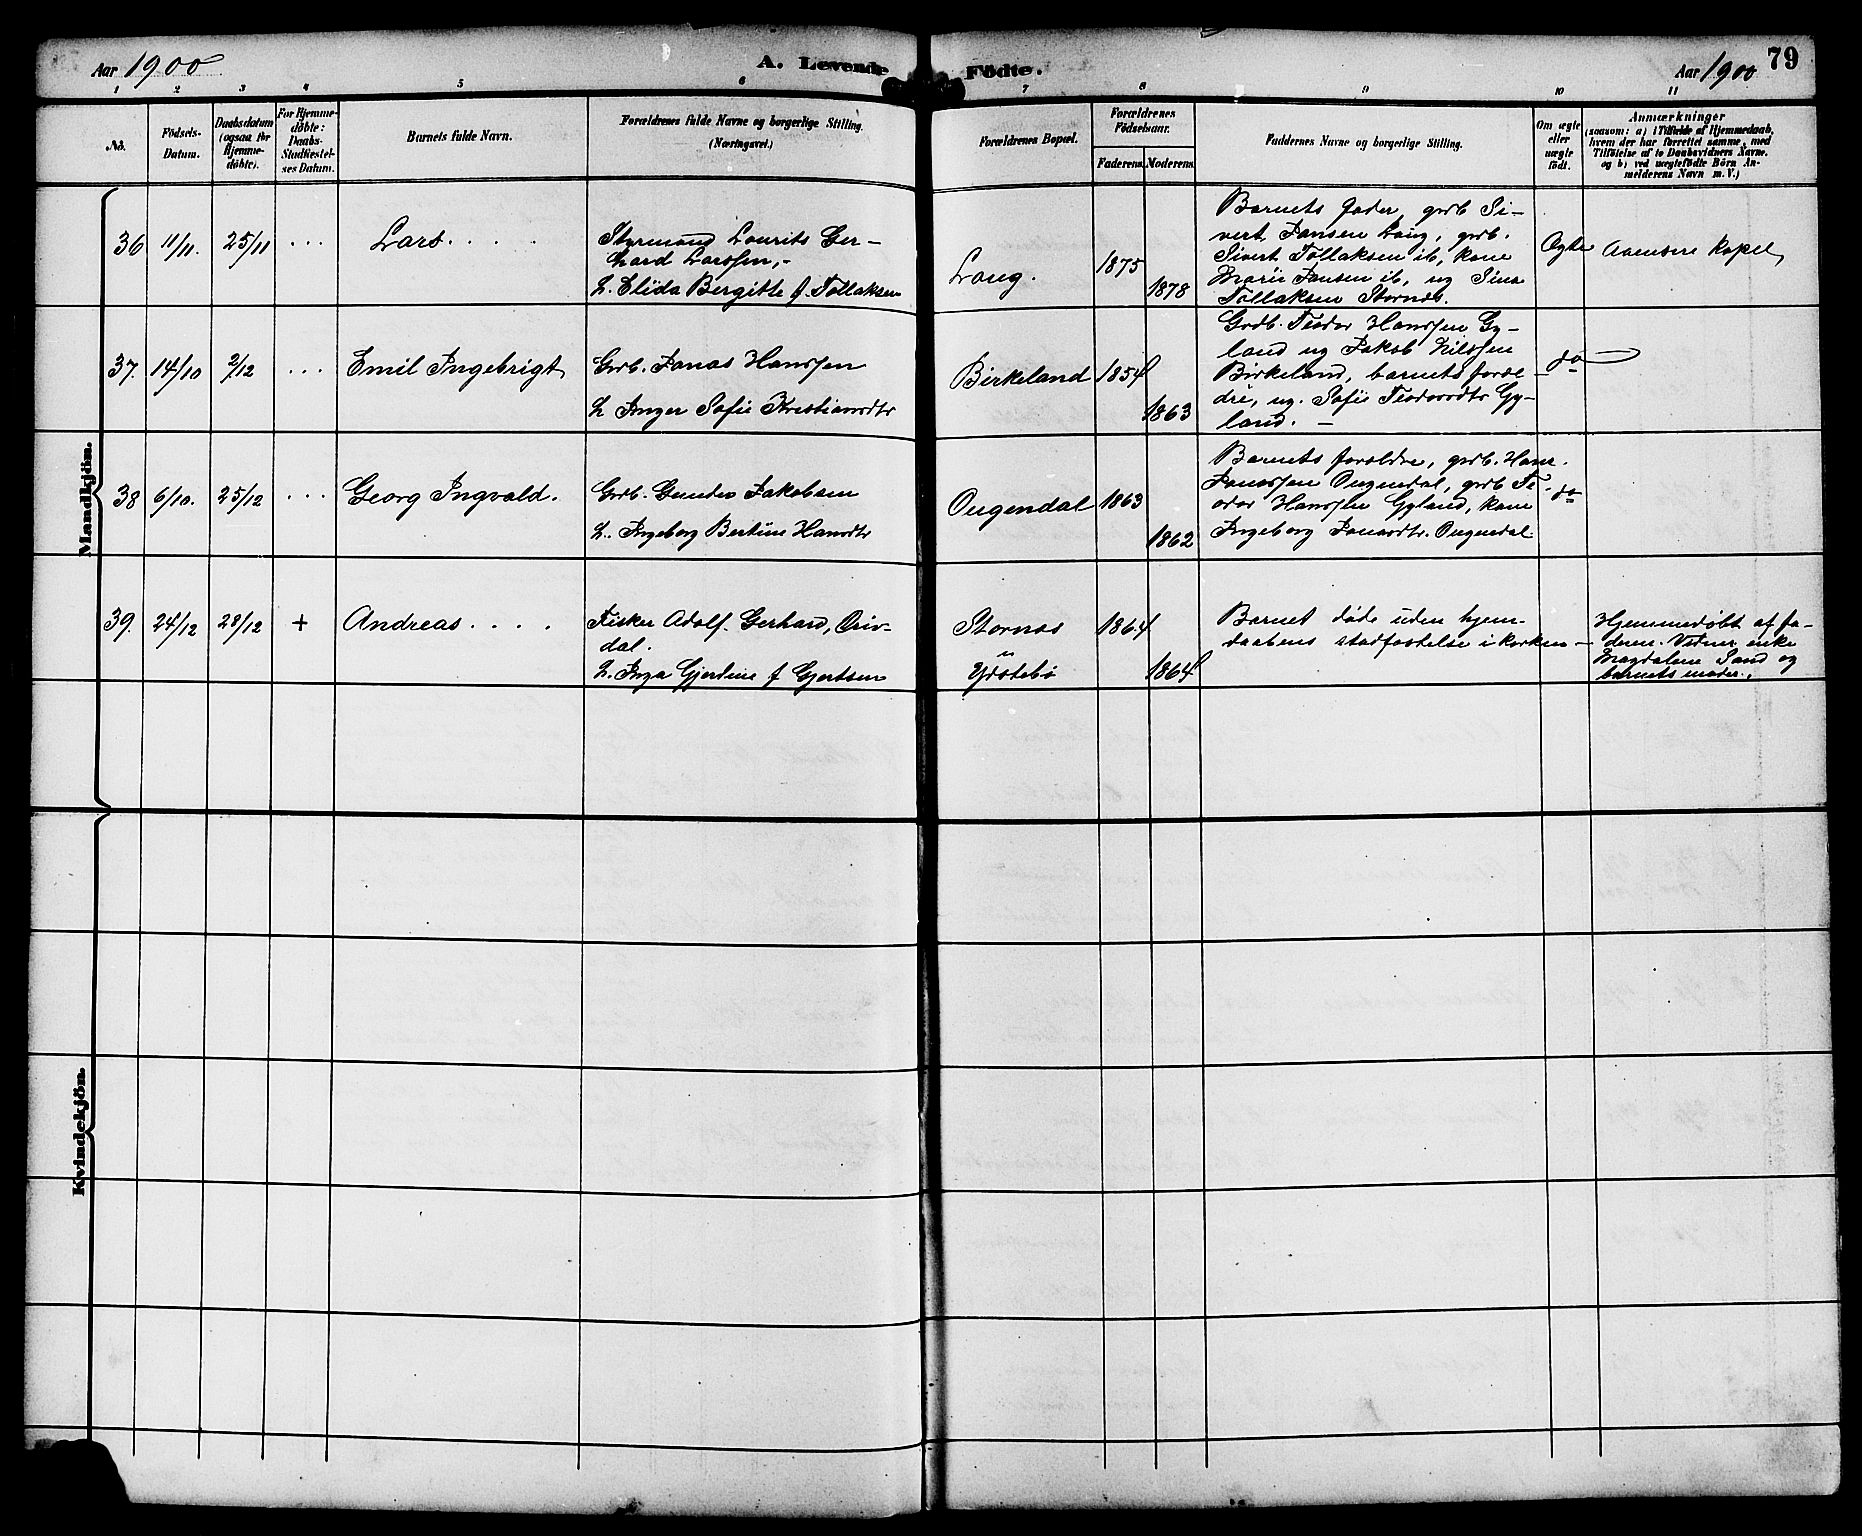 Aar 1900
A. Levende Födte.
Aar 1900
79
1 2 3 4 5 6 7 8 9 10 11
No.
Födsels-
Datum.
Daabsdatum
(ogsaa for
Hjemme-
döbte).
For Hjemme-
döbte:
Daabs-
Stadfæstel-
ses Datum.
Barnets fulde Navn.
Forældrenes fulde Navne og borgerlige Stilling.
(Næringsvei.)
Forældrenes Bopæl.
Forældrenes
Födselsaar.
Faderens.
Moderens.
Faddernes Navne og borgerlige Stilling.
Om ægte
eller
uægte
födt.
Anmærkninger
(saasom: a) i Tilfælde af Hjemmedaab,
hvem der har forrettet samme, med
Tilföielse af to Daabsvidners Navne,
og b) ved uægtefödte Börn An-
melderens Navn m. V.)
Mandkjön.
36
11/11.
25/11
. . .
Lars . . . .
Styrmand Laurits Ger-
hard Larssen,-
H. Elida Bergitte f. Tollaksen
Laug.
1875
1878
Barnets fader, grdb Si-
vert Jansen Laug, grdb.
Sivert Tollaksen ib, kone
Marie Jansen ib, ug Sina
Tollaksen Stornæs.
Ægte
Aamsere Kapel
37.
14/10
2/12
. . .
Emil Ingebrigt
Grb. Jonas Hanssen
H Inger Sofie Kristiansdtr
Birkeland
1854
1863
Grdb. Teodor Hanssen Gy-
land ug Jakob Nilssen
Birkeland, barnets foræl-
dre, ug. Sofie Teodorsdtr Gy-
land. -
do
38
6/10.
25/12
. . .
Georg Ingvald.
Grb. Gunder Jakobsen
H. Ingeborg Bertine Hansdtr
Ougendal
1863
1862
Barnets foreldre, grdb. Hans
Jonassen Ougendal, grdb Te-
odor Hanssen Gyland, kone
Ingeborg Jonasdtr. Ougendal
do
39.
24/12
28/12
+
Andreas . . . .
Fisker Adolf Gerhard,
dal.
H. Inga Gjerdine f Gjertsen
Stornæs
Ydstebø
1864
1864
Barnet døde uden hjem-
daabens stadfæstelse i kirken -
Hjemmedøbt af fa-
deren. Vidner enke
Magdalene Sand og
barnets moder.
Kvindekjön.